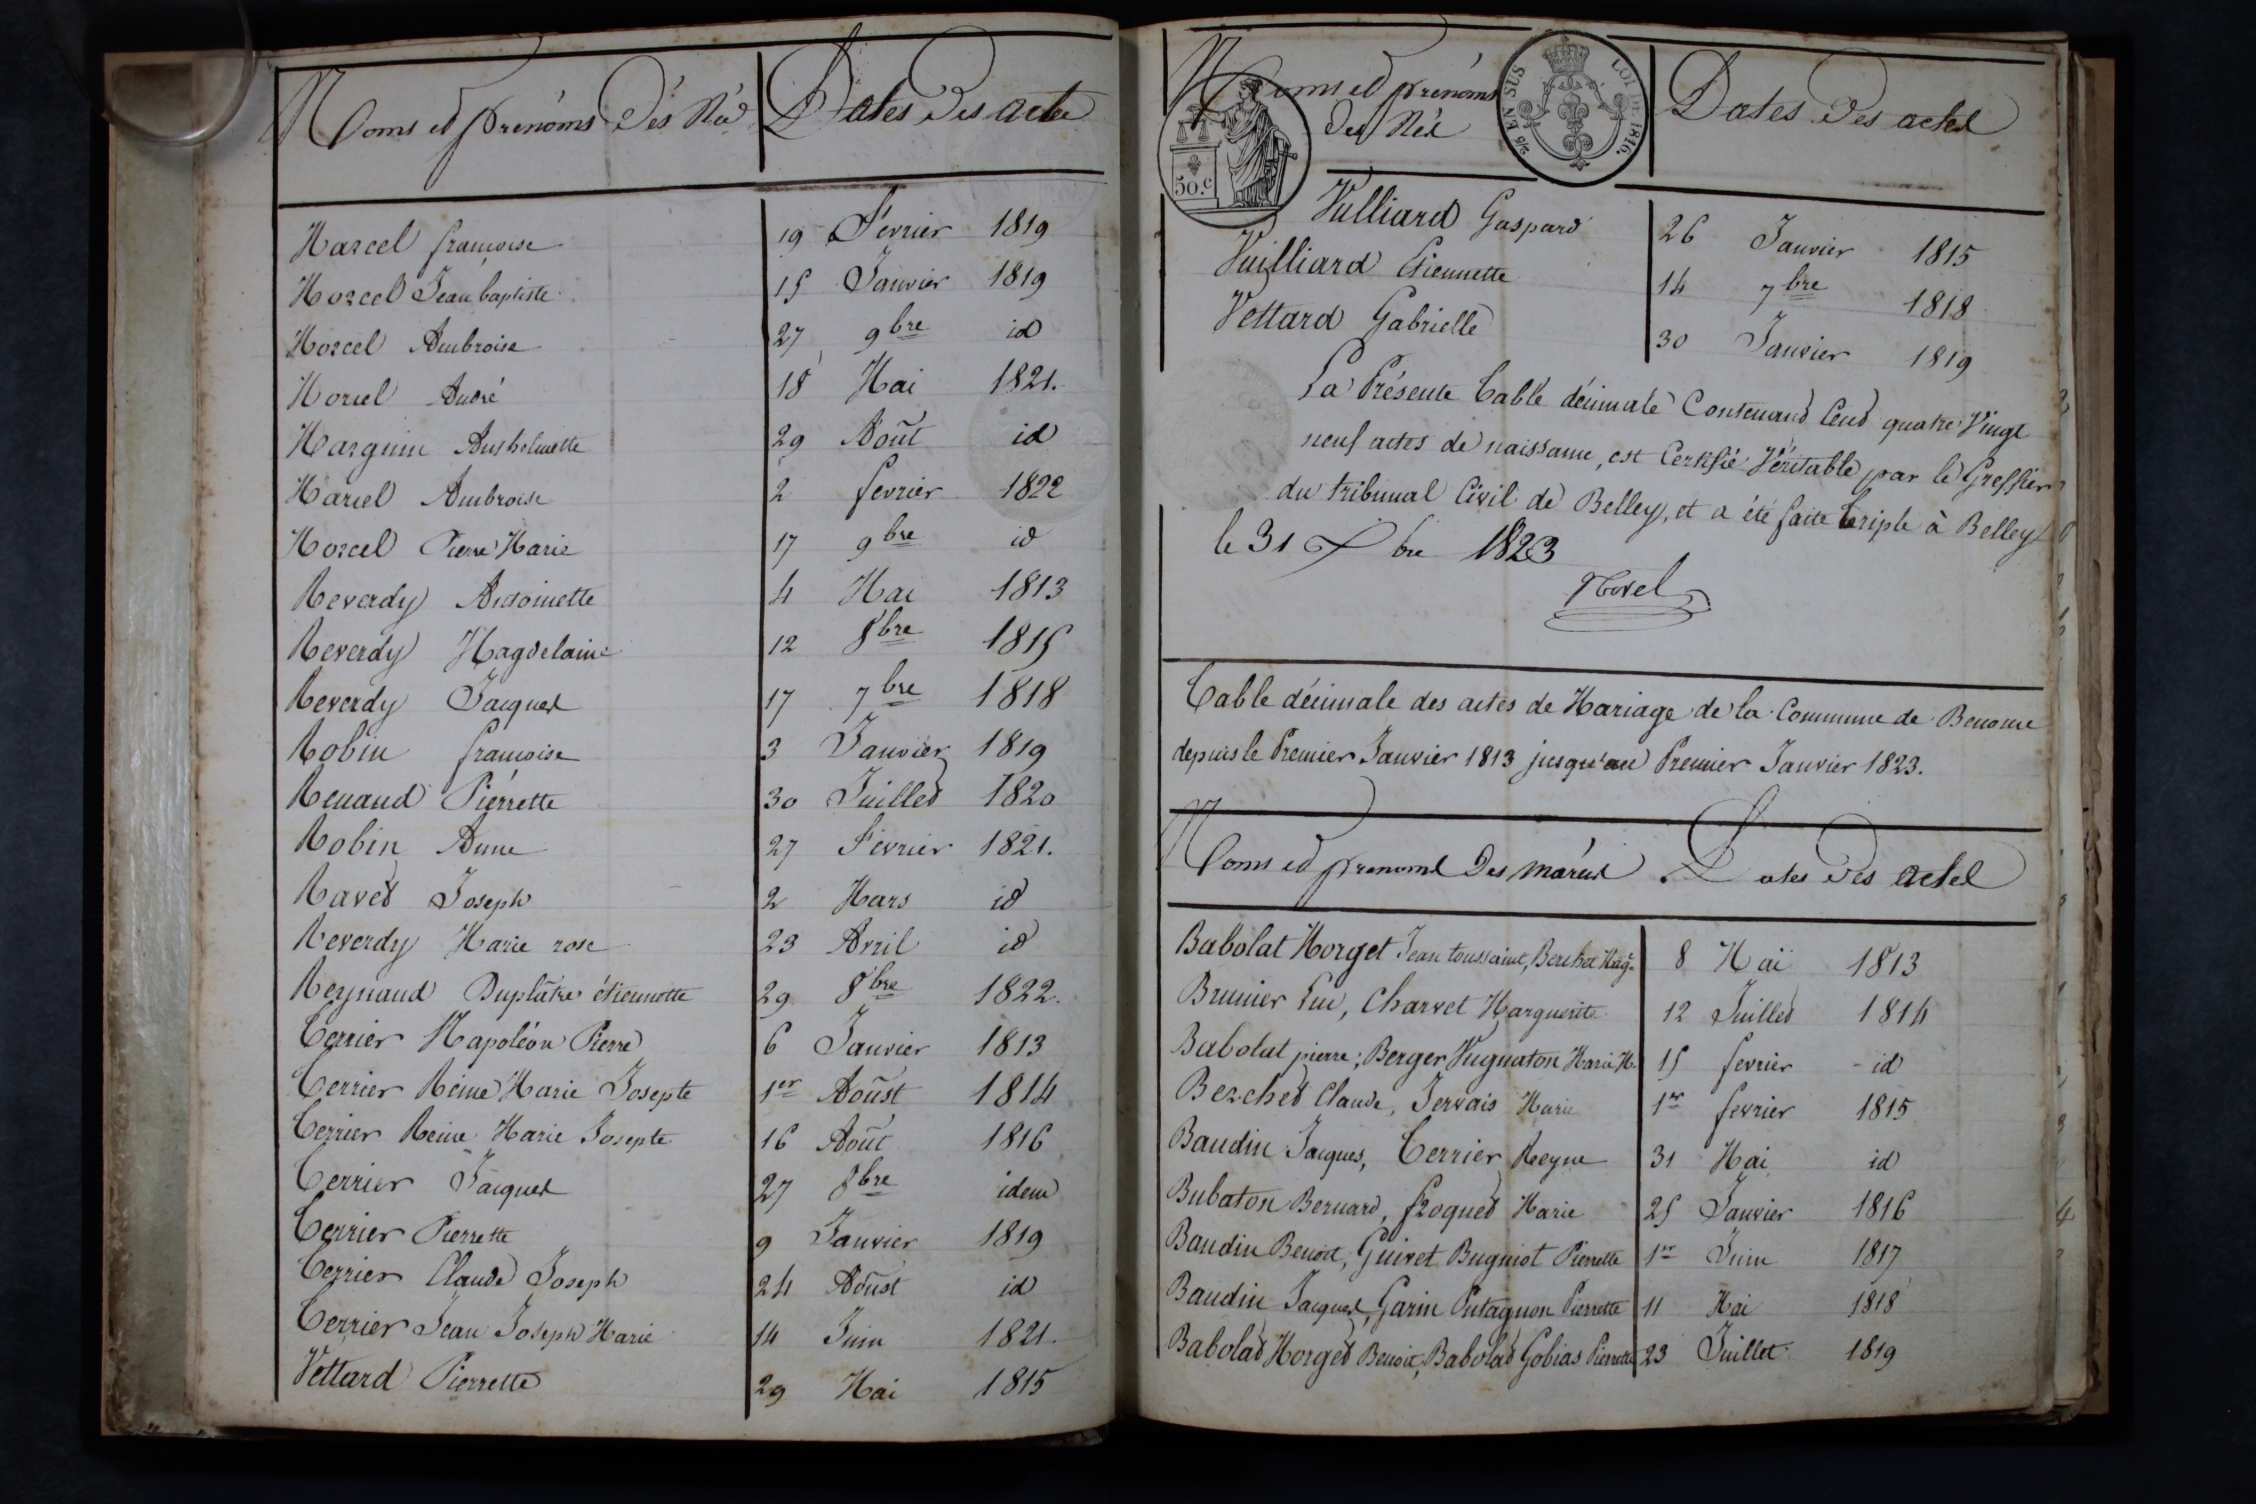 Noms et Prénoms Dés Nés Dates des actes
Marcel françoise 19 Février 1819
Morcel Jean baptiste 15 Janvier 1819
Morcel Ambroise 27 9bre id
Morcel André 18 Mai 1821.
Marguin Anthelmette 29 Août id
Marcel Ambroise 2 fevrier 1822
Morcel Pierre Marie 17 9bre id
Reverdy Antoinette 4 Mai 1813
Reverdy Magdelaine 12 8bre 1815
Reverdy Jacques 17 7bre 1818
Robin francoise 3 Janvier 1819
Renaud Piérrette 30 Juillet 1820
Robin Anne 27 Fevrier 1821.
Ravet Joseph 2 Mars id
Reverdy Marie rose 23 Avril id
Reynaud Duplâtre étiennette 29 8bre 1822.
Terrier Napoléon Pierre 6 Janvier 1813
Terrier Reine Marie Josepte 1er Aoûst 1814
Terrier Reine Marie Josepte 16 Août 1816
Terrier Jacques 27 8bre idem
Terrier Pierrette 9 Janvier 1819
Terrier Claude Joseph 24 Aoûst id
Terrier Jean Joseph Marie 14 Juin 1821.
Vettard Pierrette 29 Mai 1815
Noms et prénoms des Nés Dates des actes
5/10 EN SUS LOI DE 1816.
50.c
Vulliard Gaspard 26 Janvier 1815
Vuilliard Etiennette 14 7bre 1818
Vettard Gabrielle 30 Janvier 1819
La Présente Table décimale Contenant Cent quatre Vingt
neuf actes de naissance, est Certifié Véritable par le Greffier
du tribunal Civil de Belley, et a été faite triple à Belley
le 31 Xbre 1823
Table décimale des actes de Mariage de la Commune de Benonce
depuis le Premier Janvier 1813 jusqu'au Premier Janvier 1823.
Noms et prenoms Des mariés Dates Des actes
Babolat Morget Jean toussaint, Berchet Mag. 8 Mai 1813
Brunier Luc, Charvet Marguerite 12 Juillet 1814
Babolat pierre; Berger Vugnaton Marie M. 15 fevrier id
Berchet Claude, Jervais Marie 1er fevrier 1815
Baudin Jacques, Terrier Reyne 31 Mai id
Bubaton Bernard, froquet Marie 25 Janvier 1816
Baudin Benoit, Guivet Bugniot Pierrette 1er Juin 1817
Baudin Jacques, Garin Putagnon Pierrette 11 Mai 1818
Babolat Morget Benoit, Babolat Gobias Pierrette 23 Juillet 1819